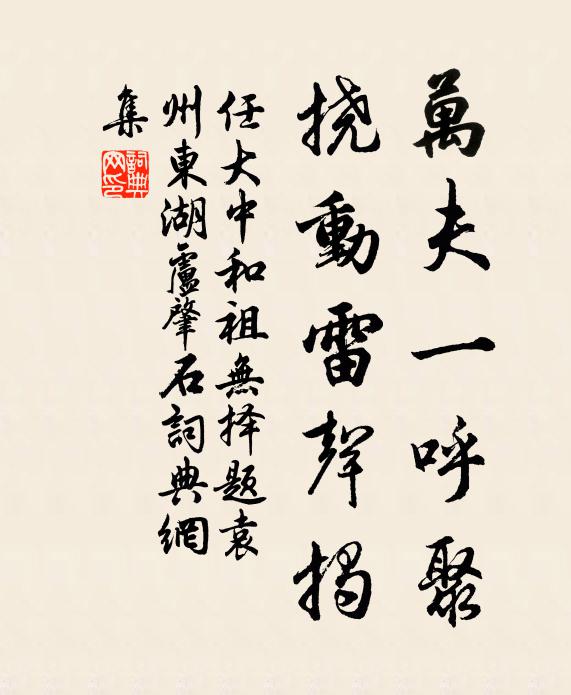 萬夫一呼聚
挠動雷聲揭
任大中和祖無择题袁
州東湖盧肇石詞典網
集
詞典网印